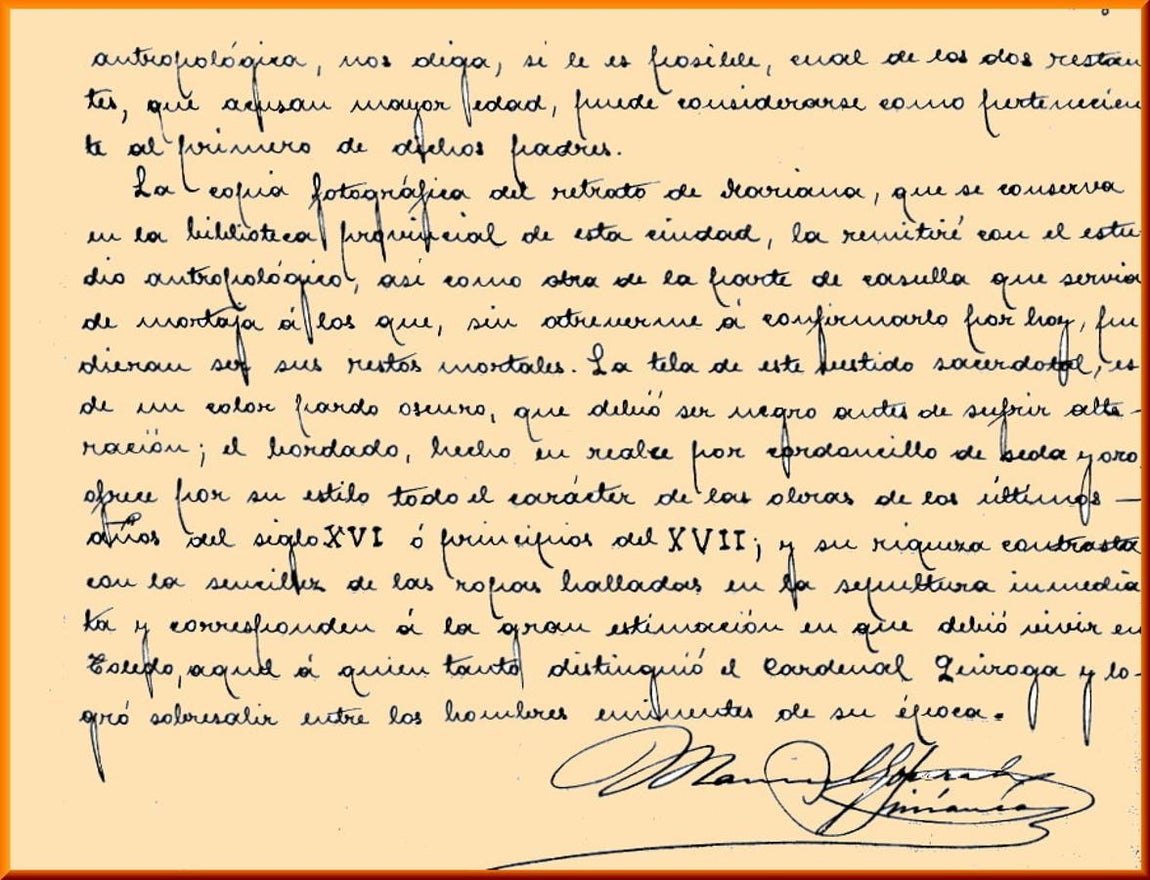 antropológica, nos diga, si le es posible, cual de los dos restan
tes, que acusan mayor edad, puede considerarse como pertenecien
te al primero de dichos padres.
La copia fotográfica del retrato de Mariana, que se conserva
en la biblioteca provincial de esta ciudad, la remitiré con el estu
dio antropológico, así como otra de la parte de casulla que servia
de mortaja á los que, sin atreverme á confirmarlo por hoy, pu
dieran ser sus restos mortales. La tela de este vestido sacerdotal, es
de un color pardo oscuro, que debió ser negro antes de sufrir alte-
ración; el bordado, hecho en realce por cordoncillo de seda y oro,
ofrece por su estilo todo el carácter de las obras de los últimos —
años del siglo XVI ó principios del XVII; y su riqueza contrasta
con la sencillez de las ropas halladas en la sepultura inmedia
ta y corresponden á la gran estimación en que debió vivir en
Toledo, aquel á quien tanto distinguió el Cardenal Quiroga y lo-
gró sobresalir entre los hombres eminentes de su época.
Manuel
Simancas